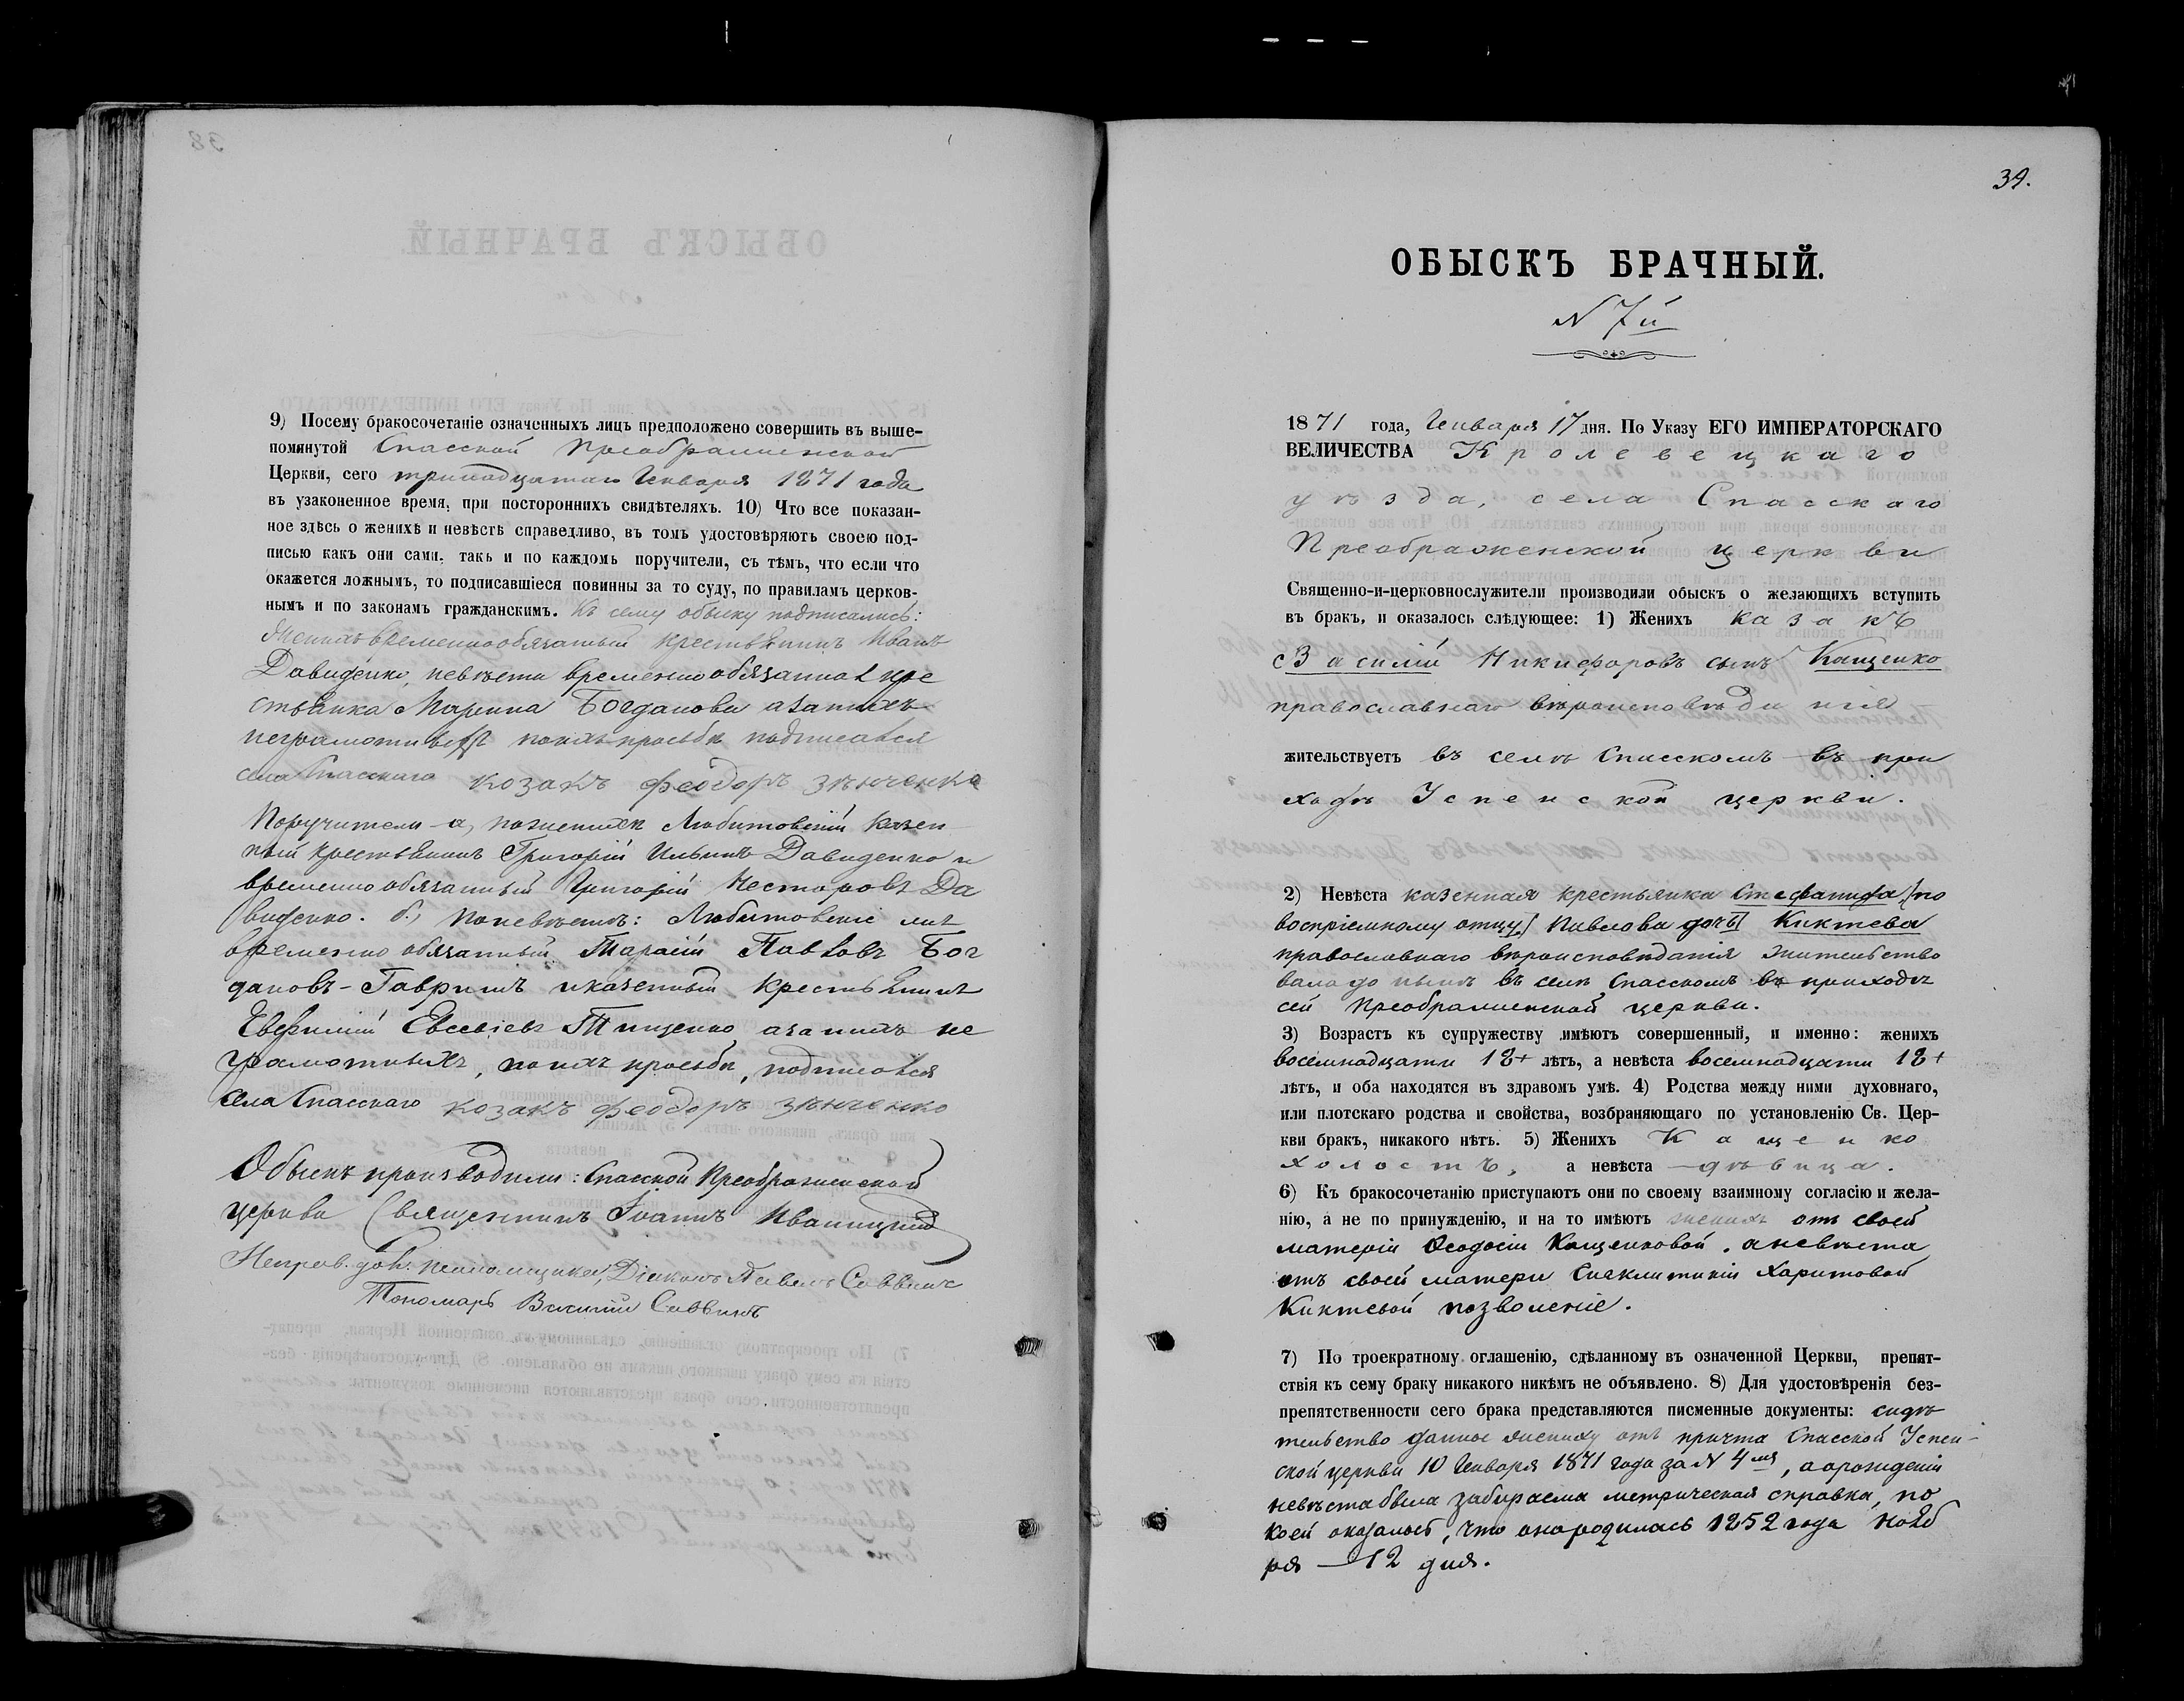 9) Посему бракосочетаніе означенныхъ лицъ предположено совершить въ выше-
помянутой Спасской Преображенской
Церкви, сего тринадцатаго Генваря 1871 года
въ узаконенное время, при постороннихъ свидѣтеляхъ. 10) Что все показан-
ное здѣсь о женихѣ и невѣстѣ справедливо, въ томъ удостовѣряютъ своею под-
писью какъ они сами, такъ и по каждомъ поручители, съ тѣмъ, что если что
окажется ложнымъ, то подписавшіеся повинны за то суду, по правиламъ церков-
нымъ и по законамъ гражданскимъ. Къ сему обыску подписались:
женихъ временнообязанный крестьянинъ Иванъ
Давиденко, невѣста временнообязанная кре
стьянка Марина Богданова а за нихъ
неграмотныхъ по ихъ просьбѣ подписался
села Спасскаго козакъ феодоръ зѣнченко
Поручители а, по женихѣ Любитовскій казен
ный крестьянинъ Григорій Ильинъ Давиденко и
временнообязанный Григорій Несторовъ Да
виденко. б.) по невѣстѣ: Любитовскіе
временно обязанный Тарасій Павловъ Бог
дановъ-Гавришъ и казенный крестьянинъ
Евфимій Евсевіевъ Тищенко а за нихъ не
грамотныхъ, по ихъ просьбѣ, подписался
села Спасскаго козакъ феодоръ зѣнченко
Обыскъ производили: Спасской Преображенской
церкви Священникъ Іоаннъ Иваницкій
Діаконъ Павелъ Саввичъ
Пономарь Василій Саввичъ
39.
ОБЫСКЪ БРАЧНЫЙ.
N 7й
1871 года, Генваря 17 дня. По Указу ЕГО ИМПЕРАТОРСКАГО
ВЕЛИЧЕСТВА Кролевецкаго
уѣзда, села Спасскаго
Преображенской церкви
Священно-и-церковнослужители производили обыскъ о желающихъ вступить
въ бракъ, и оказалось слѣдующее: 1) Женихъ казакъ
Василій Никифоровъ сынъ Кащенко
православнаго вѣроисповѣданія
жительствуетъ въ селѣ Спасскомъ въ при
ходѣ Успенской церкви.
2) Невѣста казенная крестьянка Стефанида /по
воспріемному отцу/ Павлова дочь Киктева
православнаго вѣроисповѣданія жительство
вала до нынѣ въ селѣ Спасскомъ въ приходѣ
сей Преображенской церкви.
3) Возрастъ къ супружеству имѣютъ совершенный, и именно: женихъ
восемнадцати 18+ лѣтъ, а невѣста восемнадцати 18+
лѣтъ, и оба находятся въ здравомъ умѣ. 4) Родства между ними духовнаго,
или плотскаго родства и свойства, возбраняющаго по установленію Св. Цер-
кви бракъ, никакого нѣтъ. 5) Женихъ Кащенко
холостъ, а невѣста дѣвица.
6) Къ бракосочетанію приступаютъ они по своему взаимному согласію и жела-
нію, а не по принужденію, и на то имѣютъ женихъ отъ своей
матери Ѳеодосіи Кащенковой, а невѣста
отъ своей матери Синклитикіи Харитовой
Киктевой позволеніе.
7) По троекратному оглашенію, сдѣланному въ означенной Церкви, препят-
ствія къ сему браку никакого никѣмъ не объявлено. 8) Для удостовѣренія без-
препятственности сего брака представляются писменные документы: свидѣ
тельство данное жениху отъ причта Спасской Успен-
ской церкви 10 Генваря 1871 года за N 4мъ, а о рожденіи
невѣста была забираема метрическая справка, по
коей оказалось, что она родилась 1852 года Нояб
ря 12 дня.